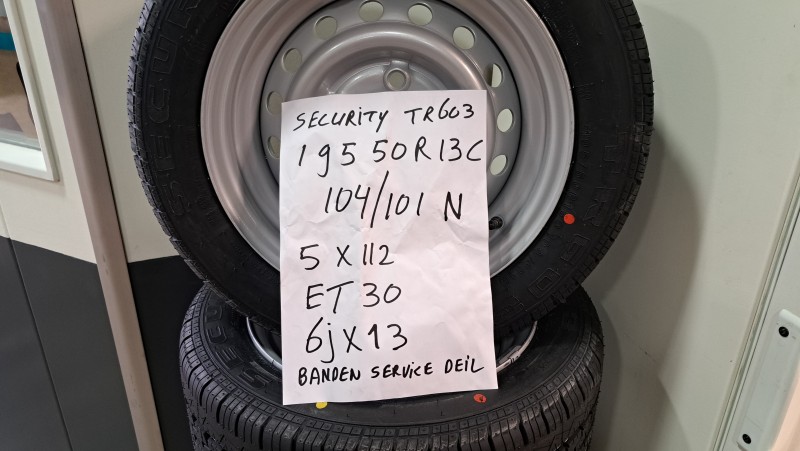 SECURITY TR603
195 50R13C
104/101 N
5 X 112
ET 30
6j X 13
BANDEN SERVICE DEIL